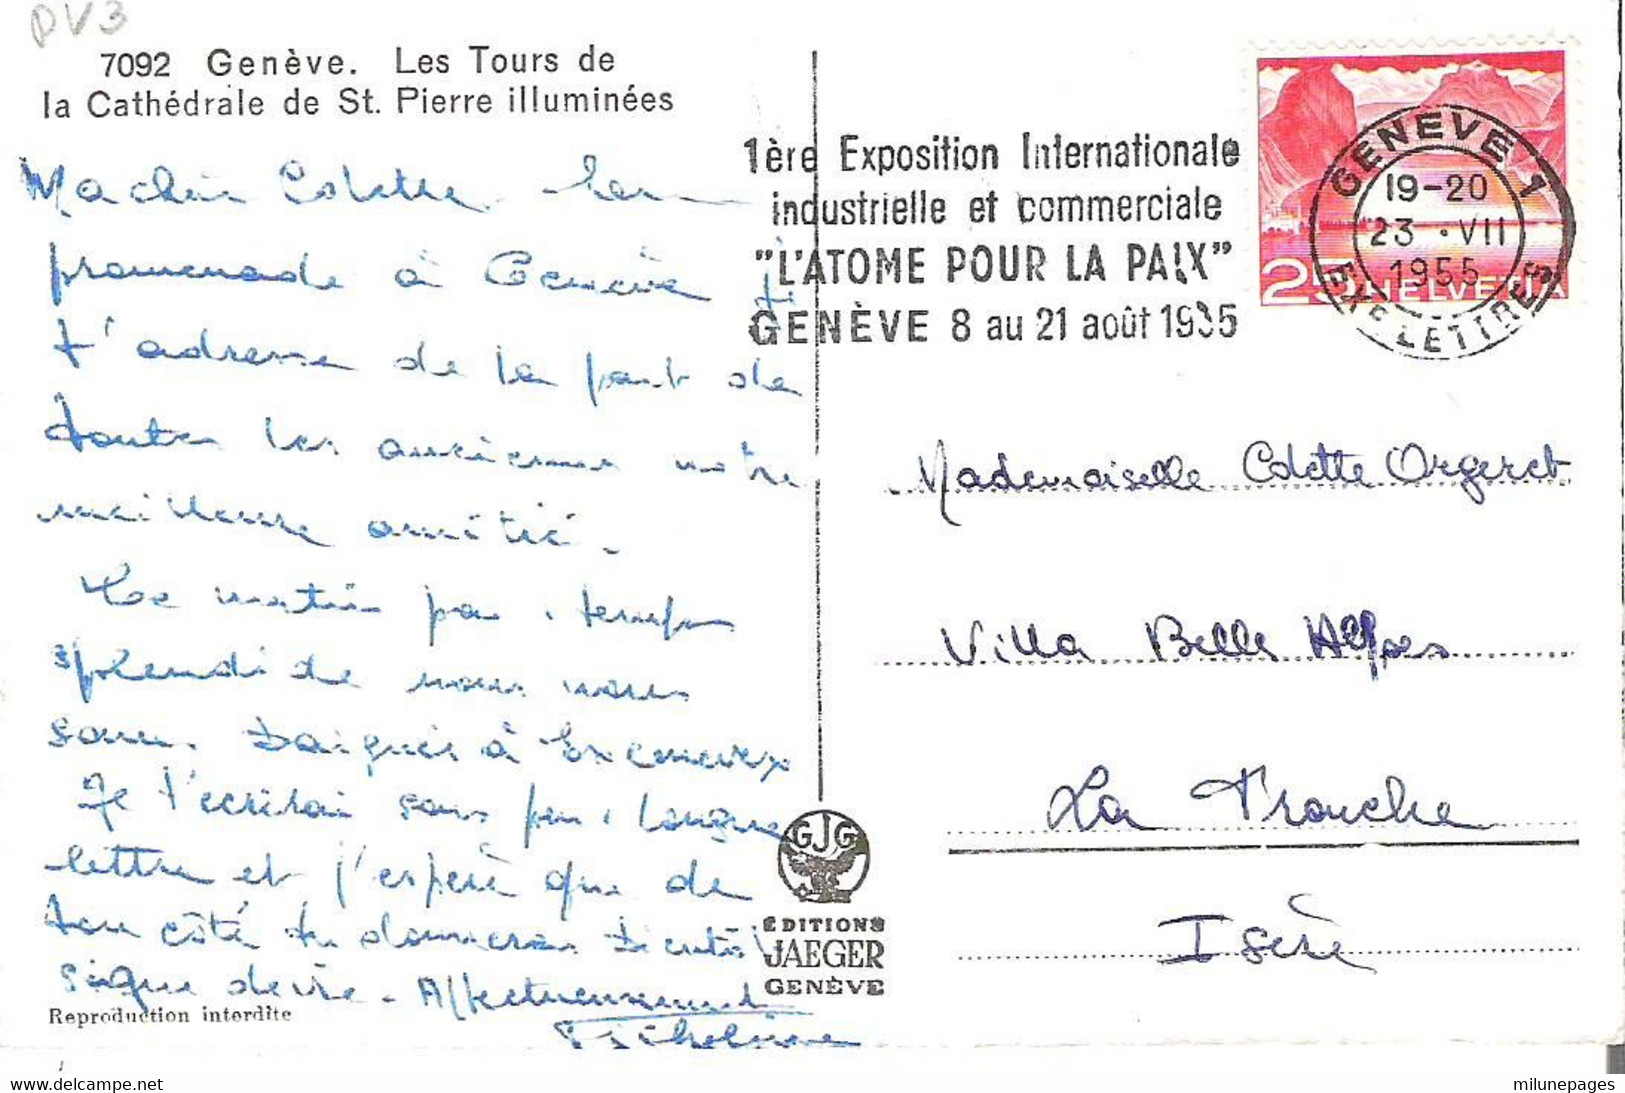 PV3
7092 Genève. Les Tours de
la Cathédrale de St. Pierre illuminées
Ma chère Colette
promenade à Genève
t'adresse de la part de
toutes les anciennes notre
meilleure amitié.
Ce matin par temps
splendide nous nous
sommes baignées à
Je t'écrirai sous peu longue
lettre et j'espère que de
ton côté tu donneras bientôt
signe de vie - Affectueusement
Reproduction interdite
1ère Exposition Internationale
industrielle et commerciale
"L'ATOME POUR LA PAIX"
GENÈVE 8 au 21 août 1955
GENEVE 1
19-20
23.VII
1955
EXP. LETTRES
25 HELVETIA
Mademoiselle Colette Orgeret
Villa Belle Alpes
La Tronche
Isère
GJG
ÉDITIONS
JAEGER
GENÈVE
www.delcampe.net
milunepages